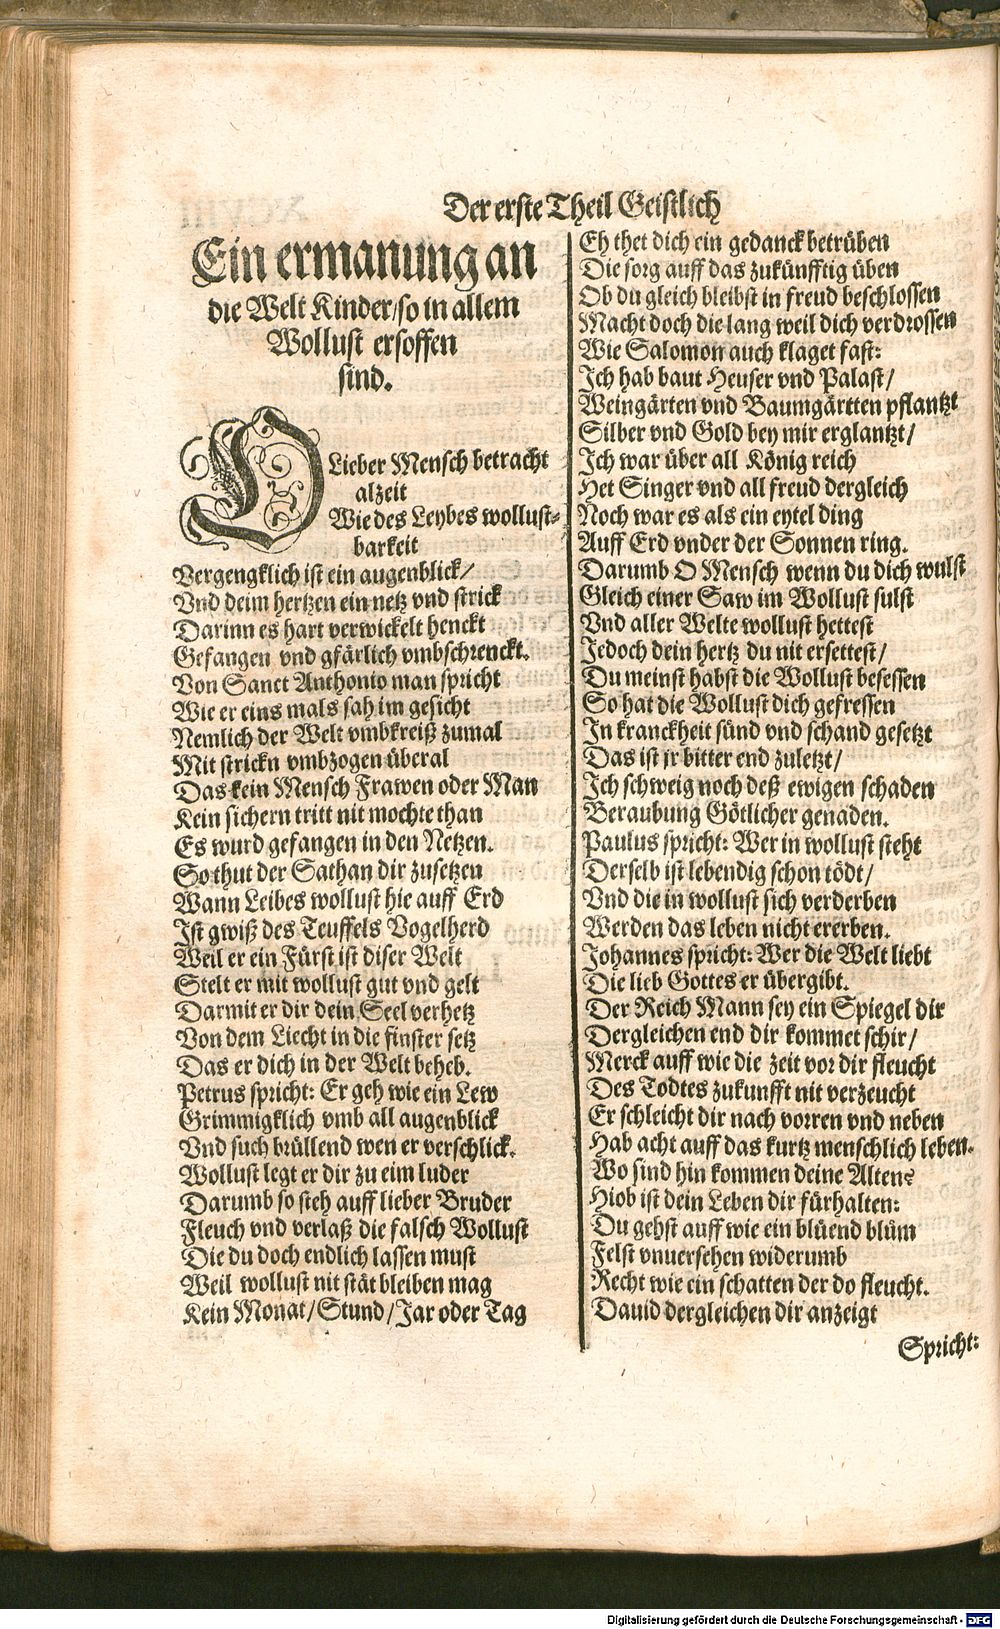 Der erste Theil Geistlich
Ein ermanung an
die Welt Kinder/so in allem
Wollust ersoffen
sind.
O Lieber Mensch betracht
alzeit
Wie des Leybes wollust-
barkeit
Vergengklich ist ein augenblick/
Vnd deim hertzen ein netz vnd strick
Darinn es hart verwickelt henckt
Gefangen vnd gfärlich vmbschrenckt.
Von Sanct Anthonio man spricht
Wie er eins mals sah im gesicht
Nemlich der Welt vmbkreiß zumal
Mit strickn vmbzogen überal
Das kein Mensch Frawen oder Man
Kein sichern tritt nit mochte than
Es wurd gefangen in den Netzen.
So thut der Sathan dir zusetzen
Wann Leibes wollust hie auff Erd
Ist gwiß des Teuffels Vogelherd
Weil er ein Fürst ist diser Welt
Stelt er mit wollust gut vnd gelt
Darmit er dir dein Seel verhetz
Von dem Liecht in die finster setz
Das er dich in der Welt beheb.
Petrus spricht: Er geh wie ein Lew
Grimmigklich vmb all augenblick
Vnd such brüllend wen er verschlick.
Wollust legt er dir zu eim luder
Darumb so steh auff lieber Bruder
Fleuch vnd verlaß die falsch Wollust
Die du doch endlich lassen must
Weil wollust nit stät bleiben mag
Kein Monat/Stund/Jar oder Tag
Eh thet dich ein gedanck betrüben
Die sorg auff das zukünfftig üben
Ob du gleich bleibst in freud beschlossen
Macht doch die lang weil dich verdrossen
Wie Salomon auch klaget fast:
Ich hab baut Heuser vnd Palast/
Weingärten vnd Baumgärtten pflantzt
Silber vnd Gold bey mir erglantzt/
Ich war über all König reich
Het Singer vnd all freud dergleich
Noch war es als ein eytel ding
Auff Erd vnder der Sonnen ring.
Darumb O Mensch wenn du dich wulst
Gleich einer Saw im Wollust sulst
Vnd aller Welte wollust hettest
Jedoch dein hertz du nit ersettest/
Du meinst habst die Wollust besessen
So hat die Wollust dich gefressen
In kranckheit sünd vnd schand gesetzt
Das ist jr bitter end zuletzt/
Ich schweig noch deß ewigen schaden
Beraubung Götlicher genaden.
Paulus spricht: Wer in wollust steht
Derselb ist lebendig schon tödt/
Vnd die in wollust sich verderben
Werden das leben nicht ererben.
Johannes spricht: Wer die Welt liebt
Die lieb Gottes er übergibt.
Der Reich Mann sey ein Spiegel dir
Dergleichen end dir kommet schir/
Merck auff wie die zeit vor dir fleucht
Des Todtes zukunfft nit verzeucht
Er schleicht dir nach vorren vnd neben
Hab acht auff das kurtz menschlich leben.
Wo sind hin kommen deine Alten?
Hiob ist dein Leben dir fürhalten:
Du gehst auff wie ein blüend blüm
Felst vnuersehen widerumb
Recht wie ein schatten der do fleucht.
Dauid dergleichen dir anzeigt
Spricht:
Digitalisierung gefördert durch die Deutsche Forschungsgemeinschaft - DFG